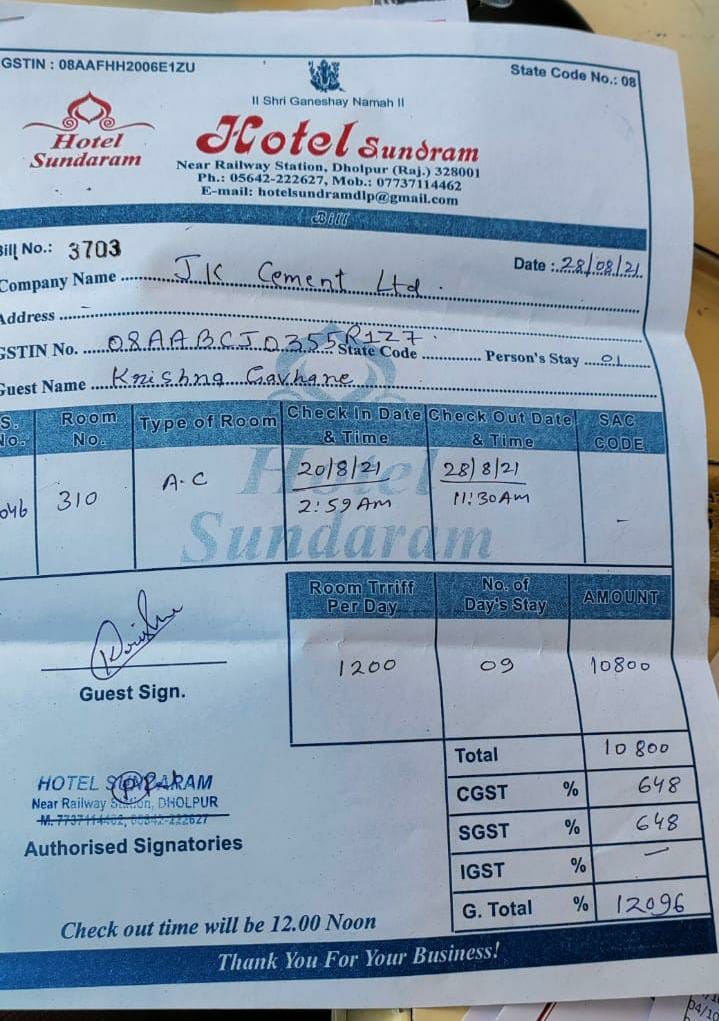 GSTIN : 08AAFHH2006E1ZU
State Code No.: 08
II Shri Ganeshay Namah II
Hotel Sundaram
Hotel Sundram
Near Railway Station, Dholpur (Raj.) 328001
Ph.: 05642-222627, Mob.: 07737114462
E-mail: hotelsundramdlp@gmail.com
Bill
Bill No.: 3703
Date : 28/08/21
Company Name J.K Cement Ltd.
Address
GSTIN No. 08AABCJ0355R1Z7. State Code Person's Stay 01
Guest Name Krishna Gavhane
S. No. Room No. Type of Room Check In Date & Time Check Out Date & Time SAC CODE
046 310 A.C 20/8/21 2:59 Am 28/8/21 11:30 Am -
Hotel Sundaram
Room Trriff Per Day No. of Day's Stay AMOUNT
1200 09 10800
Guest Sign.
Total 10800
CGST % 648
SGST % 648
IGST % -
G. Total % 12096
HOTEL SUNDARAM
Near Railway Station, DHOLPUR
M. 7737114462, 05642-222627
Authorised Signatories
Check out time will be 12.00 Noon
Thank You For Your Business!